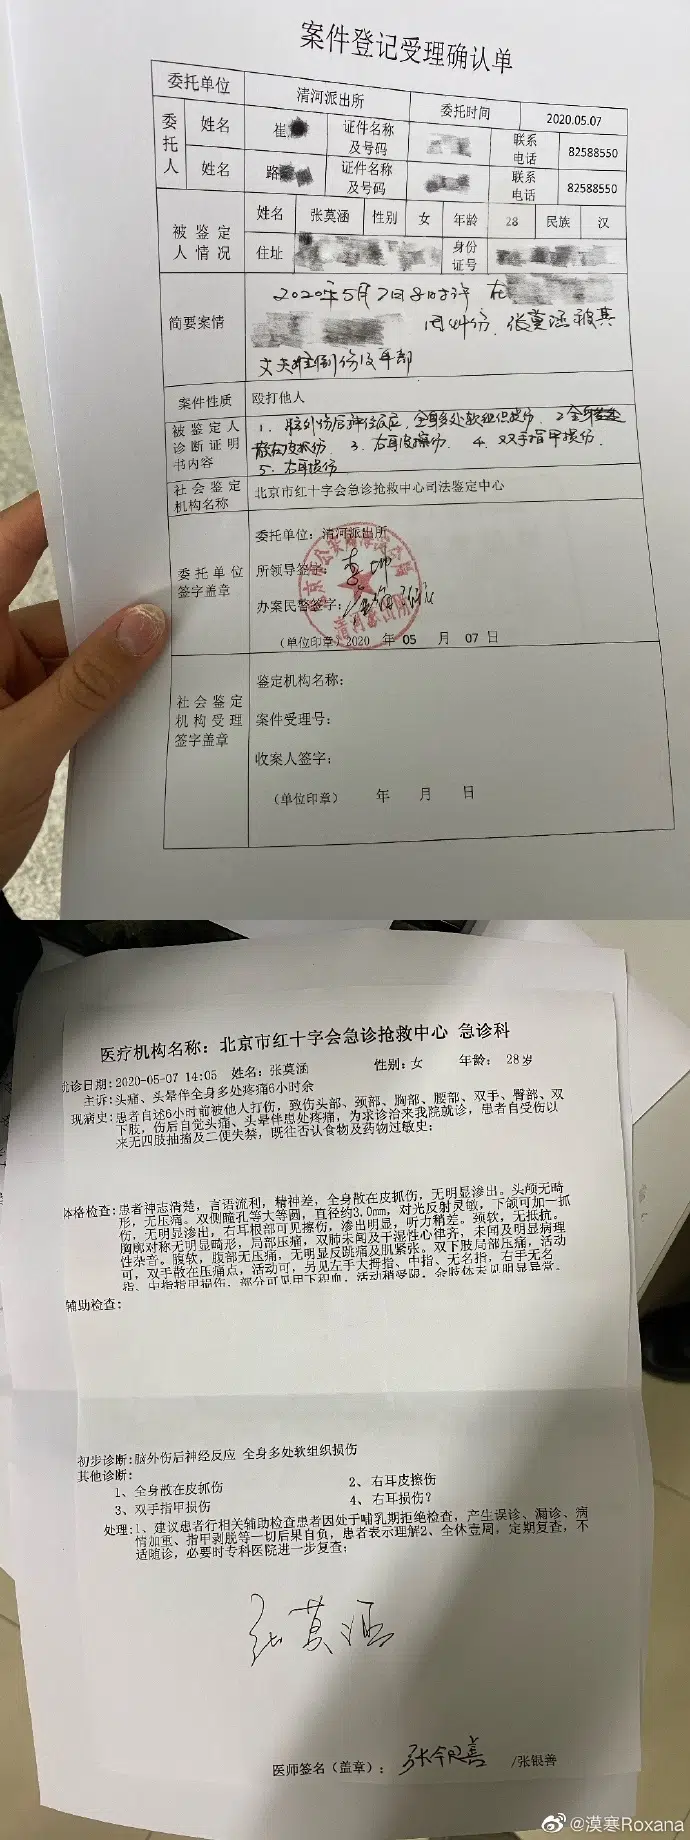 案件登记受理确认单
委托单位 清河派出所 委托时间 2020.05.07
委托人
姓名 崔 证件名称及号码 联系电话 82588550
姓名 路 证件名称及号码 联系电话 82588550
被鉴定人情况
姓名 张莫涵 性别 女 年龄 28 民族 汉
住址 身份证号
简要案情
2020年5月7日8时许 在
因纠纷,张莫涵被其
丈夫 伤及耳部
案件性质 殴打他人
被鉴定人诊断证明书内容
1、脑外伤后神经反应,全身多处软组织损伤 2 全身
散在皮抓伤 3、右耳皮擦伤 4、双手指甲损伤
5、右耳损伤
社会鉴定机构名称 北京市红十字会急诊抢救中心司法鉴定中心
委托单位签字盖章
委托单位:清河派出所
所领导签字:
办案民警签字:
(单位印章)2020 年 05 月 07 日
社会鉴定机构受理签字盖章
鉴定机构名称:
案件受理号:
收案人签字:
(单位印章) 年 月 日
医疗机构名称: 北京市红十字会急诊抢救中心 急诊科
诊日期:2020-05-07 14:05 姓名:张莫涵 性别:女 年龄: 28岁
主诉:头痛、头晕伴全身多处疼痛6小时余
现病史:患者自述6小时前被他人打伤,致伤头部、颈部、胸部、腰部、双手、臀部、双
下肢,伤后自觉头痛、头晕伴患处疼痛,为求诊治来我院就诊,患者自受伤以
来无四肢抽搐及二便失禁,既往否认食物及药物过敏史;
体格检查:患者神志清楚,言语流利,精神差,全身散在皮抓伤,无明显渗出。头颅无畸
形,无压痛。双侧瞳孔等大等圆,直径约3.0mm,对光反射灵敏,下颌可加一抓
伤,无明显渗出,右耳根部可见擦伤,渗出明显,听力稍差。颈软,无抵抗。
胸廓对称无明显畸形,局部压痛,双肺未闻及干湿性心律齐,未闻及明显病理
性杂音。腹软,腹部无压痛,无明显反跳痛及肌紧张。双下肢局部压痛,活动
可,双手散在压痛点,活动可,另见左手大拇指、中指、无名指,右手无名
指、中指指甲损伤,部分可见甲下积血,活动稍受限,余肢体未见明显异常。
辅助检查:
初步诊断:脑外伤后神经反应 全身多处软组织损伤
其他诊断:
1、全身散在皮抓伤 2、右耳皮擦伤
3、双手指甲损伤 4、右耳损伤?
处理:1、建议患者行相关辅助检查患者因处于哺乳期拒绝检查,产生误诊、漏诊、病
情加重、指甲剥脱等一切后果自负,患者表示理解2、全休壹周,定期复查,不
适随诊,必要时专科医院进一步复查;
张莫涵
医师签名(盖章): 张银善 /张银善
@漠寒Roxana